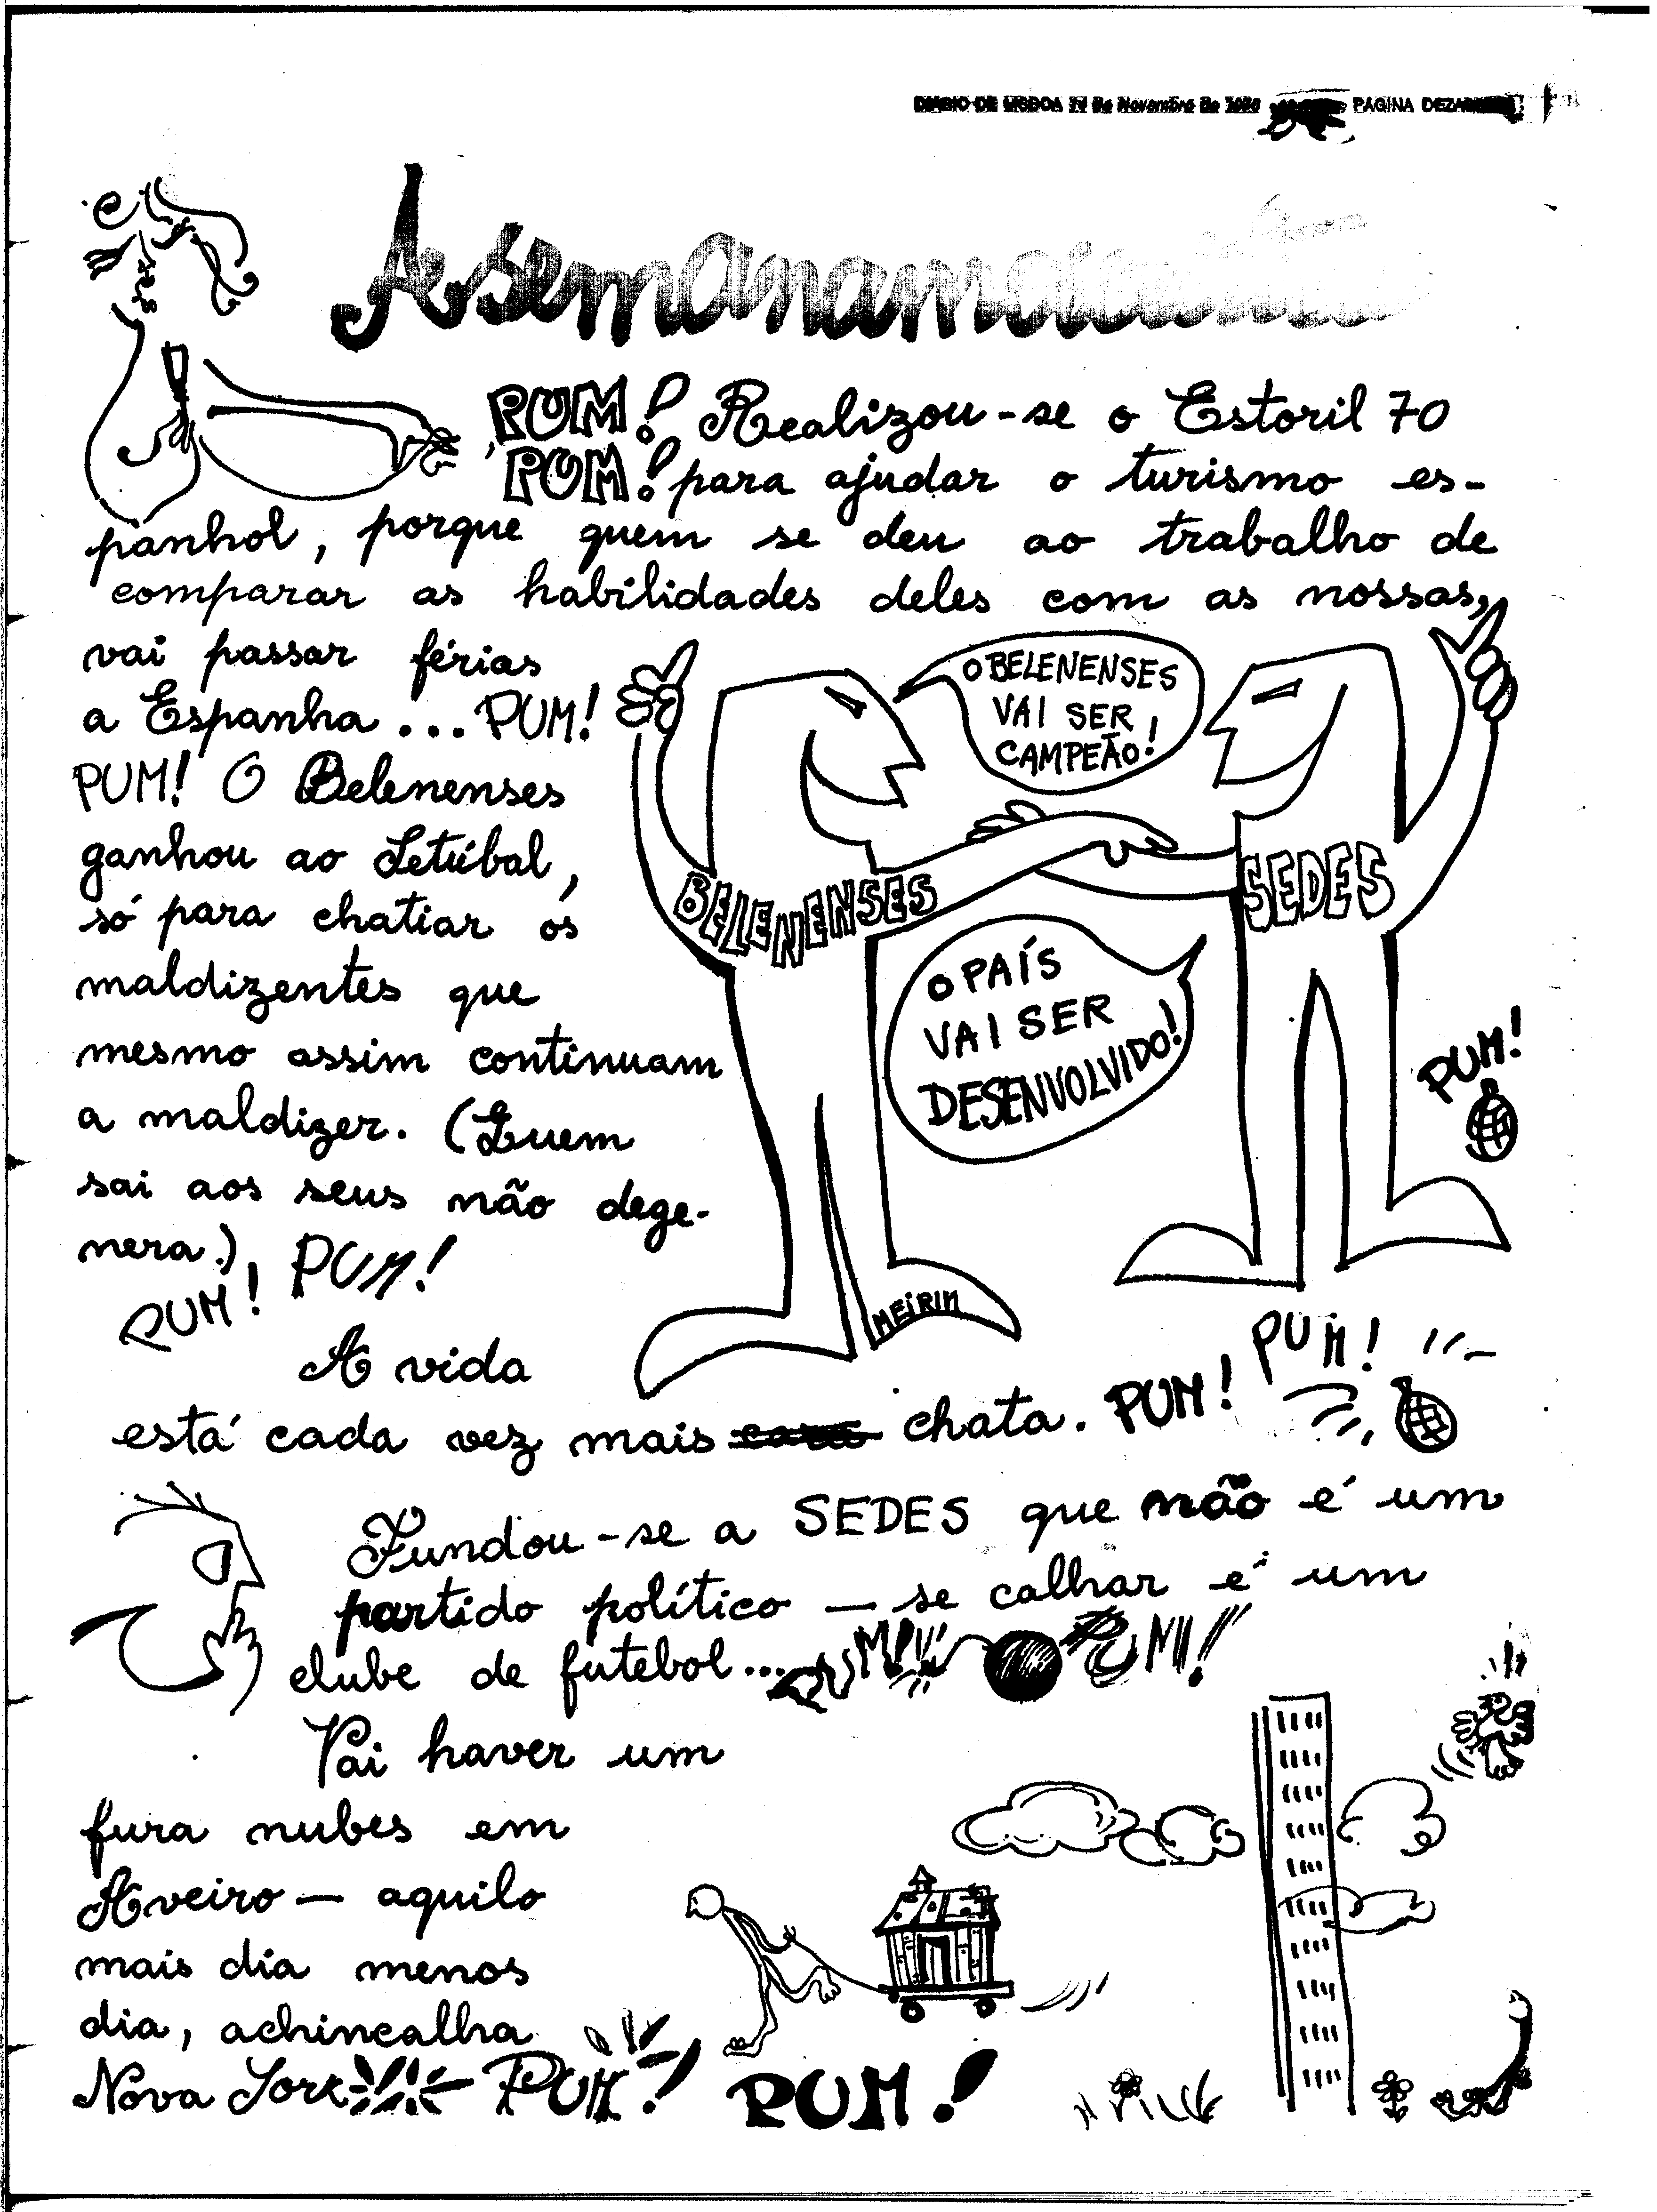 DIARIO DE LISBOA de Novembro de PÁGINA
A semana
PUM! Realizou-se o Estoril 70
PUM! para ajudar o turismo es-
panhol, porque quem se deu ao trabalho de
comparar as habilidades deles com as nossas,
vai passar férias
a Espanha... PUM!
PUM! O Belenenses
ganhou ao Setúbal,
só para chatiar os
maldizentes que
mesmo assim continuam
a maldizer. (Quem
sai aos seus não dege-
nera.)
PUM! PUM!
O BELENENSES
VAI SER
CAMPEÃO!
BELENENSES
SEDES
O PAÍS
VAI SER
DESENVOLVIDO!
PUM!
MEIRIM
A vida
está cada vez mais cara chata. PUM! PUM!
Fundou-se a SEDES que não é um
partido político — se calhar é um
clube de futebol... PUM! PUM!
Vai haver um
fura nubes em
Aveiro — aquilo
mais dia menos
dia, achincalha
Nova York PUM! PUM!